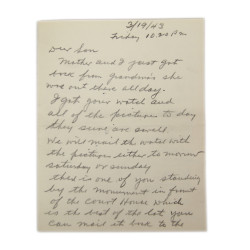 3/19/43
Friday 10.30 Pm
Dear Son
Mother and I just got
back from grandma's she
was out there all day.
I got your watch and
all of the pictures to day
they sure are swell.
We will mail the watch with
the pictures either to morrow
saturday or sunday
there is one of you standing
by the monument in front
of the Court House which
is the best of the lot. you
can mail it back to the